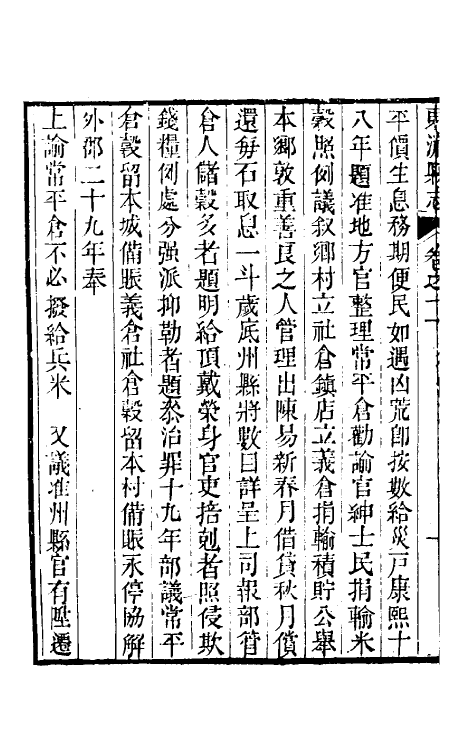 平價生息務期便民如遇凶荒卽按數給災戸康熙十
八年題准地方官整理常平倉勸諭官紳士民捐輸米
穀照例議敘鄉村立社倉鎮店立義倉捐輸積貯公舉
本鄉敦重善良之人管理出陳易新春月借貸秋月償
還每石取息一斗歲底州縣將數目詳呈上司報部管
倉人儲穀多者題明給頂戴榮身官吏掊剋者照侵欺
錢糧例處分强派抑勒者題叅治罪十九年部議常平
倉穀留本城備賑義倉社倉穀留本村備賑永停協解
外郡二十九年奉
上諭常平倉不必撥給兵米 又議准州縣官有陞遷